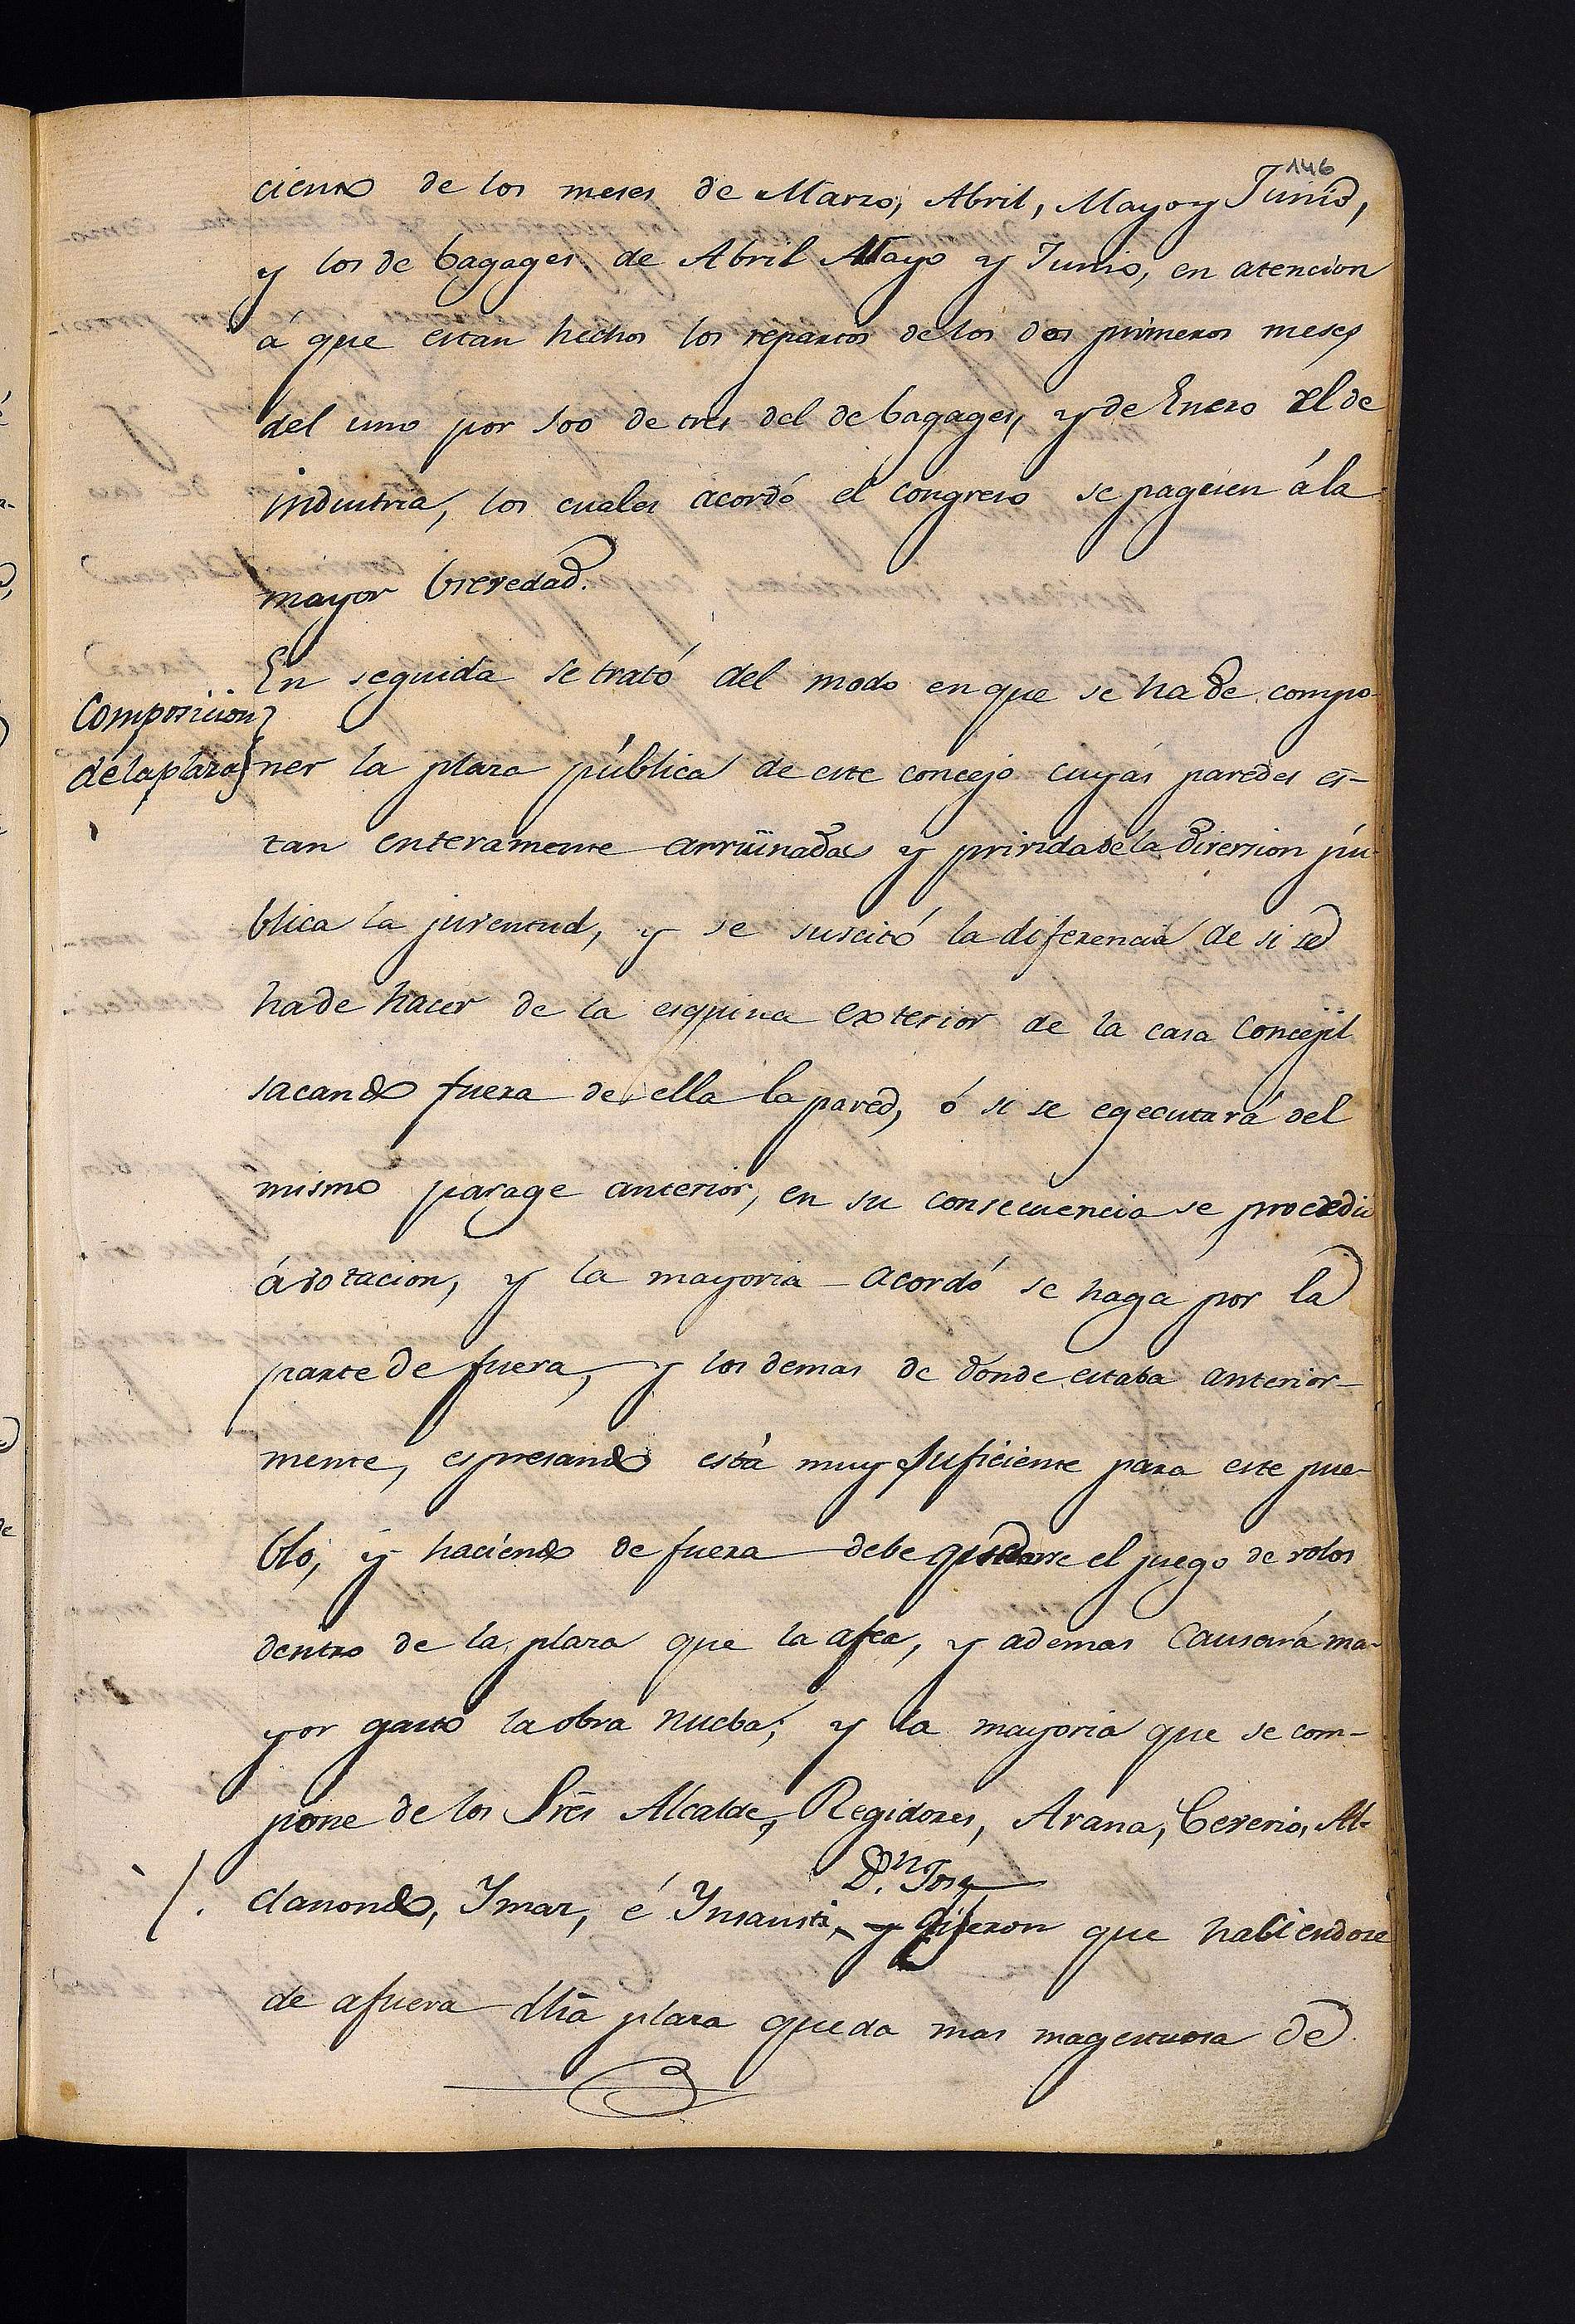 146
ciento de los meses de Marzo, Abril, Mayo y Junio,
y los de bagages de Abril Mayo y Junio, en atencion
á que estan hechos los repartos de los dos primeros meses
del uno por 100 de tres del de bagages, y de Enero el de
industria, los cuales acordó el congreso se paguen á la
mayor brevedad.
En seguida se trató del modo en que se ha de compo-
Composicion
de la plaza
ner la plaza pública de este concejo cuyas paredes es-
tan enteramente arruinadas y privida de la diversion pú
blica la juventud, y se suscitó la diferencia de si se
ha de hacer de la esquina exterior de la casa Concejil
sacando fuera de ella la pared, ó si se egecutará del
mismo parage anterior, en su consecuencia se procedió
á votacion, y la mayoria acordó se haga por la
parte de fuera, y los demas de donde estaba anterior-
mente, espresando está muy suficiente para este pue-
blo, y haciendo de fuera debe quedarse el juego de volos
dentro de la plaza que la afea, y ademas causará ma-
yor gasto la obra nueba; y la mayoria que se com-
pone de los Sres Alcalde, Regidores, Arana, Cererio, Al-
Dn. José
danondo, Ymaz, é Ynsausti, y dijeron que haciendose
de afuera dha plaza queda mas magestuosa de